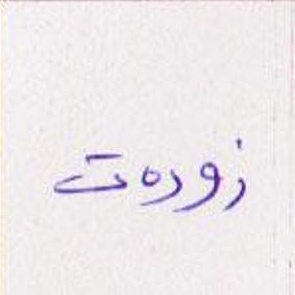 زودەت